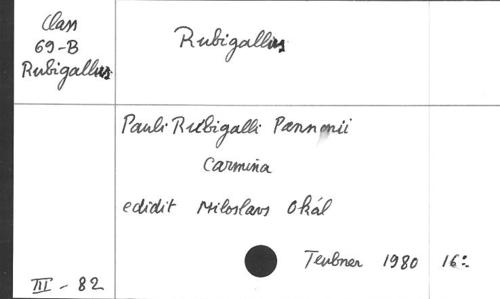 Class
69-B
Rubigallus
Rubigallus
Pauli Rubigalli Pannonii
Carmina
edidit Miloslavs Okál
Teubner 1980 16:
III - 82